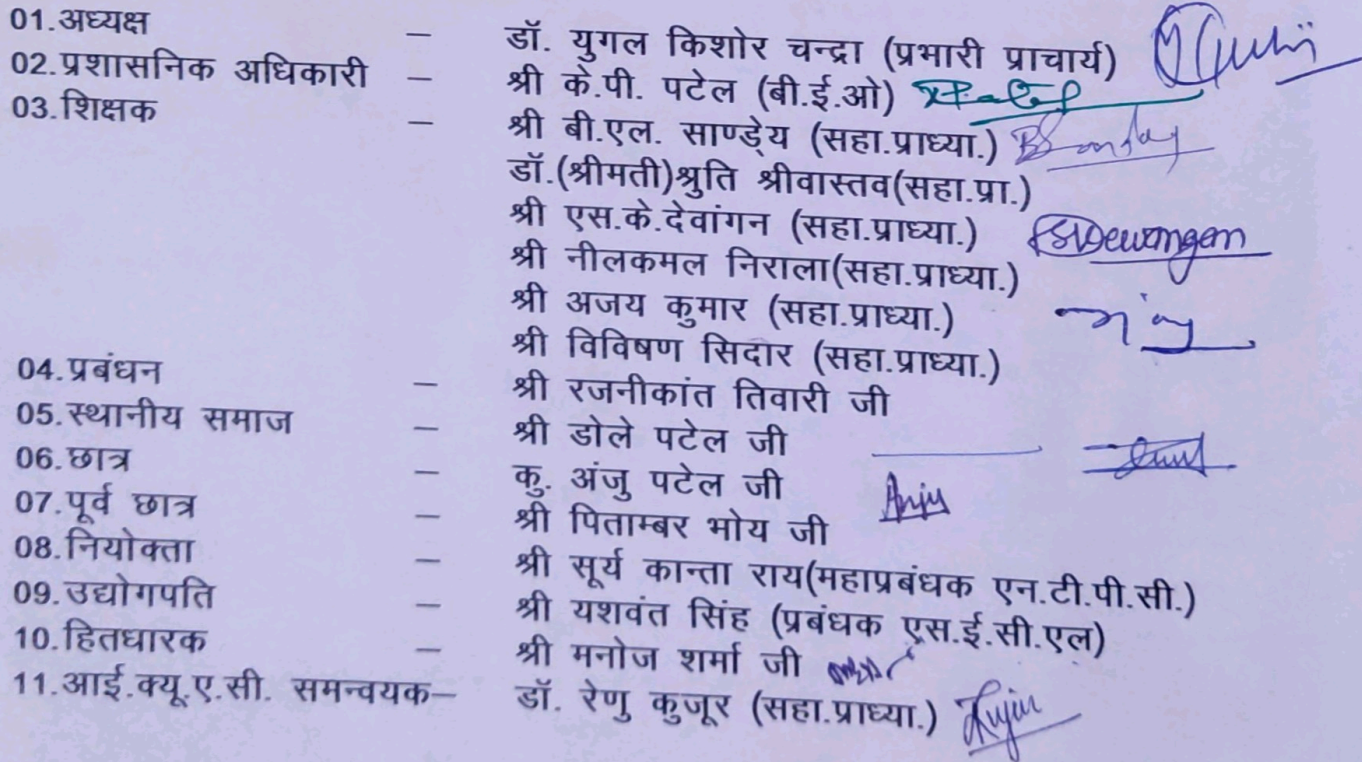 01.अध्यक्ष – डॉ. युगल किशोर चन्द्रा (प्रभारी प्राचार्य)
02.प्रशासनिक अधिकारी – श्री के.पी. पटेल (बी.ई.ओ)
03.शिक्षक – श्री बी.एल. साण्डे्य (सहा.प्राध्या.)
डॉ.(श्रीमती)श्रुति श्रीवास्तव(सहा.प्रा.)
श्री एस.के.देवांगन (सहा.प्राध्या.) SDewangan
श्री नीलकमल निराला(सहा.प्राध्या.)
श्री अजय कुमार (सहा.प्राध्या.)
श्री विविषण सिदार (सहा.प्राध्या.)
04.प्रबंधन – श्री रजनीकांत तिवारी जी
05.स्थानीय समाज – श्री डोले पटेल जी
06.छात्र – कु. अंजु पटेल जी Anju
07.पूर्व छात्र – श्री पिताम्बर भोय जी
08.नियोक्ता – श्री सूर्य कान्ता राय(महाप्रबंधक एन.टी.पी.सी.)
09.उद्योगपति – श्री यशवंत सिंह (प्रबंधक एस.ई.सी.एल)
10.हितधारक – श्री मनोज शर्मा जी
11.आई.क्यू.ए.सी. समन्वयक– डॉ. रेणु कुजूर (सहा.प्राध्या.) Kujur